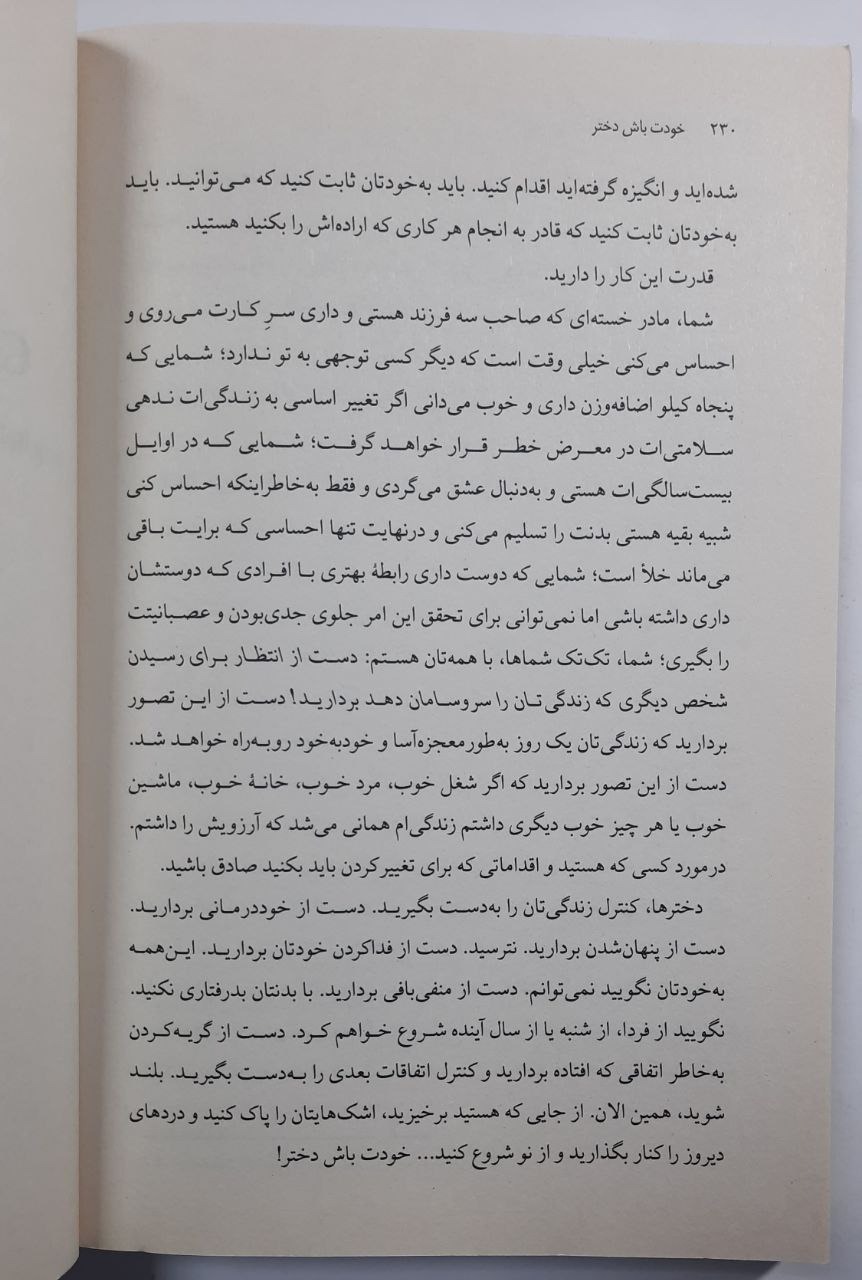 ۲۳۰ خودت باش دختر
شده‌اید و انگیزه گرفته‌اید اقدام کنید. باید به‌خودتان ثابت کنید که می‌توانید. باید
به‌خودتان ثابت کنید که قادر به انجام هر کاری که اراده‌اش را بکنید هستید.
قدرت این کار را دارید.
شما، مادر خسته‌ای که صاحب سه فرزند هستی و داری سرِ کارت می‌روی و
احساس می‌کنی خیلی وقت است که دیگر کسی توجهی به تو ندارد؛ شمایی که
پنجاه کیلو اضافه‌وزن داری و خوب می‌دانی اگر تغییر اساسی به زندگی‌ات ندهی
سلامتی‌ات در معرض خطر قرار خواهد گرفت؛ شمایی که در اوایل
بیست‌سالگی‌ات هستی و به‌دنبال عشق می‌گردی و فقط به‌خاطراینکه احساس کنی
شبیه بقیه هستی بدنت را تسلیم می‌کنی و درنهایت تنها احساسی که برایت باقی
می‌ماند خلأ است؛ شمایی که دوست داری رابطهٔ بهتری با افرادی که دوستشان
داری داشته باشی اما نمی‌توانی برای تحقق این امر جلوی جدی‌بودن و عصبانیتت
را بگیری؛ شما، تک‌تک شماها، با همه‌تان هستم: دست از انتظار برای رسیدن
شخص دیگری که زندگی‌تان را سروسامان دهد بردارید! دست از این تصور
بردارید که زندگی‌تان یک روز به‌طورمعجزه‌آسا و خودبه‌خود روبه‌راه خواهد شد.
دست از این تصور بردارید که اگر شغل خوب، مرد خوب، خانهٔ خوب، ماشین
خوب یا هر چیز خوب دیگری داشتم زندگی‌ام همانی می‌شد که آرزویش را داشتم.
درمورد کسی که هستید و اقداماتی که برای تغییرکردن باید بکنید صادق باشید.
دخترها، کنترل زندگی‌تان را به‌دست بگیرید. دست از خوددرمانی بردارید.
دست از پنهان‌شدن بردارید. نترسید. دست از فداکردن خودتان بردارید. این‌همه
به‌خودتان نگویید نمی‌توانم. دست از منفی‌بافی بردارید. با بدنتان بدرفتاری نکنید.
نگویید از فردا، از شنبه یا از سال آینده شروع خواهم کرد. دست از گریه‌کردن
به‌خاطر اتفاقی که افتاده بردارید و کنترل اتفاقات بعدی را به‌دست بگیرید. بلند
شوید، همین الان. از جایی که هستید برخیزید، اشک‌هایتان را پاک کنید و دردهای
دیروز را کنار بگذارید و از نو شروع کنید... خودت باش دختر!